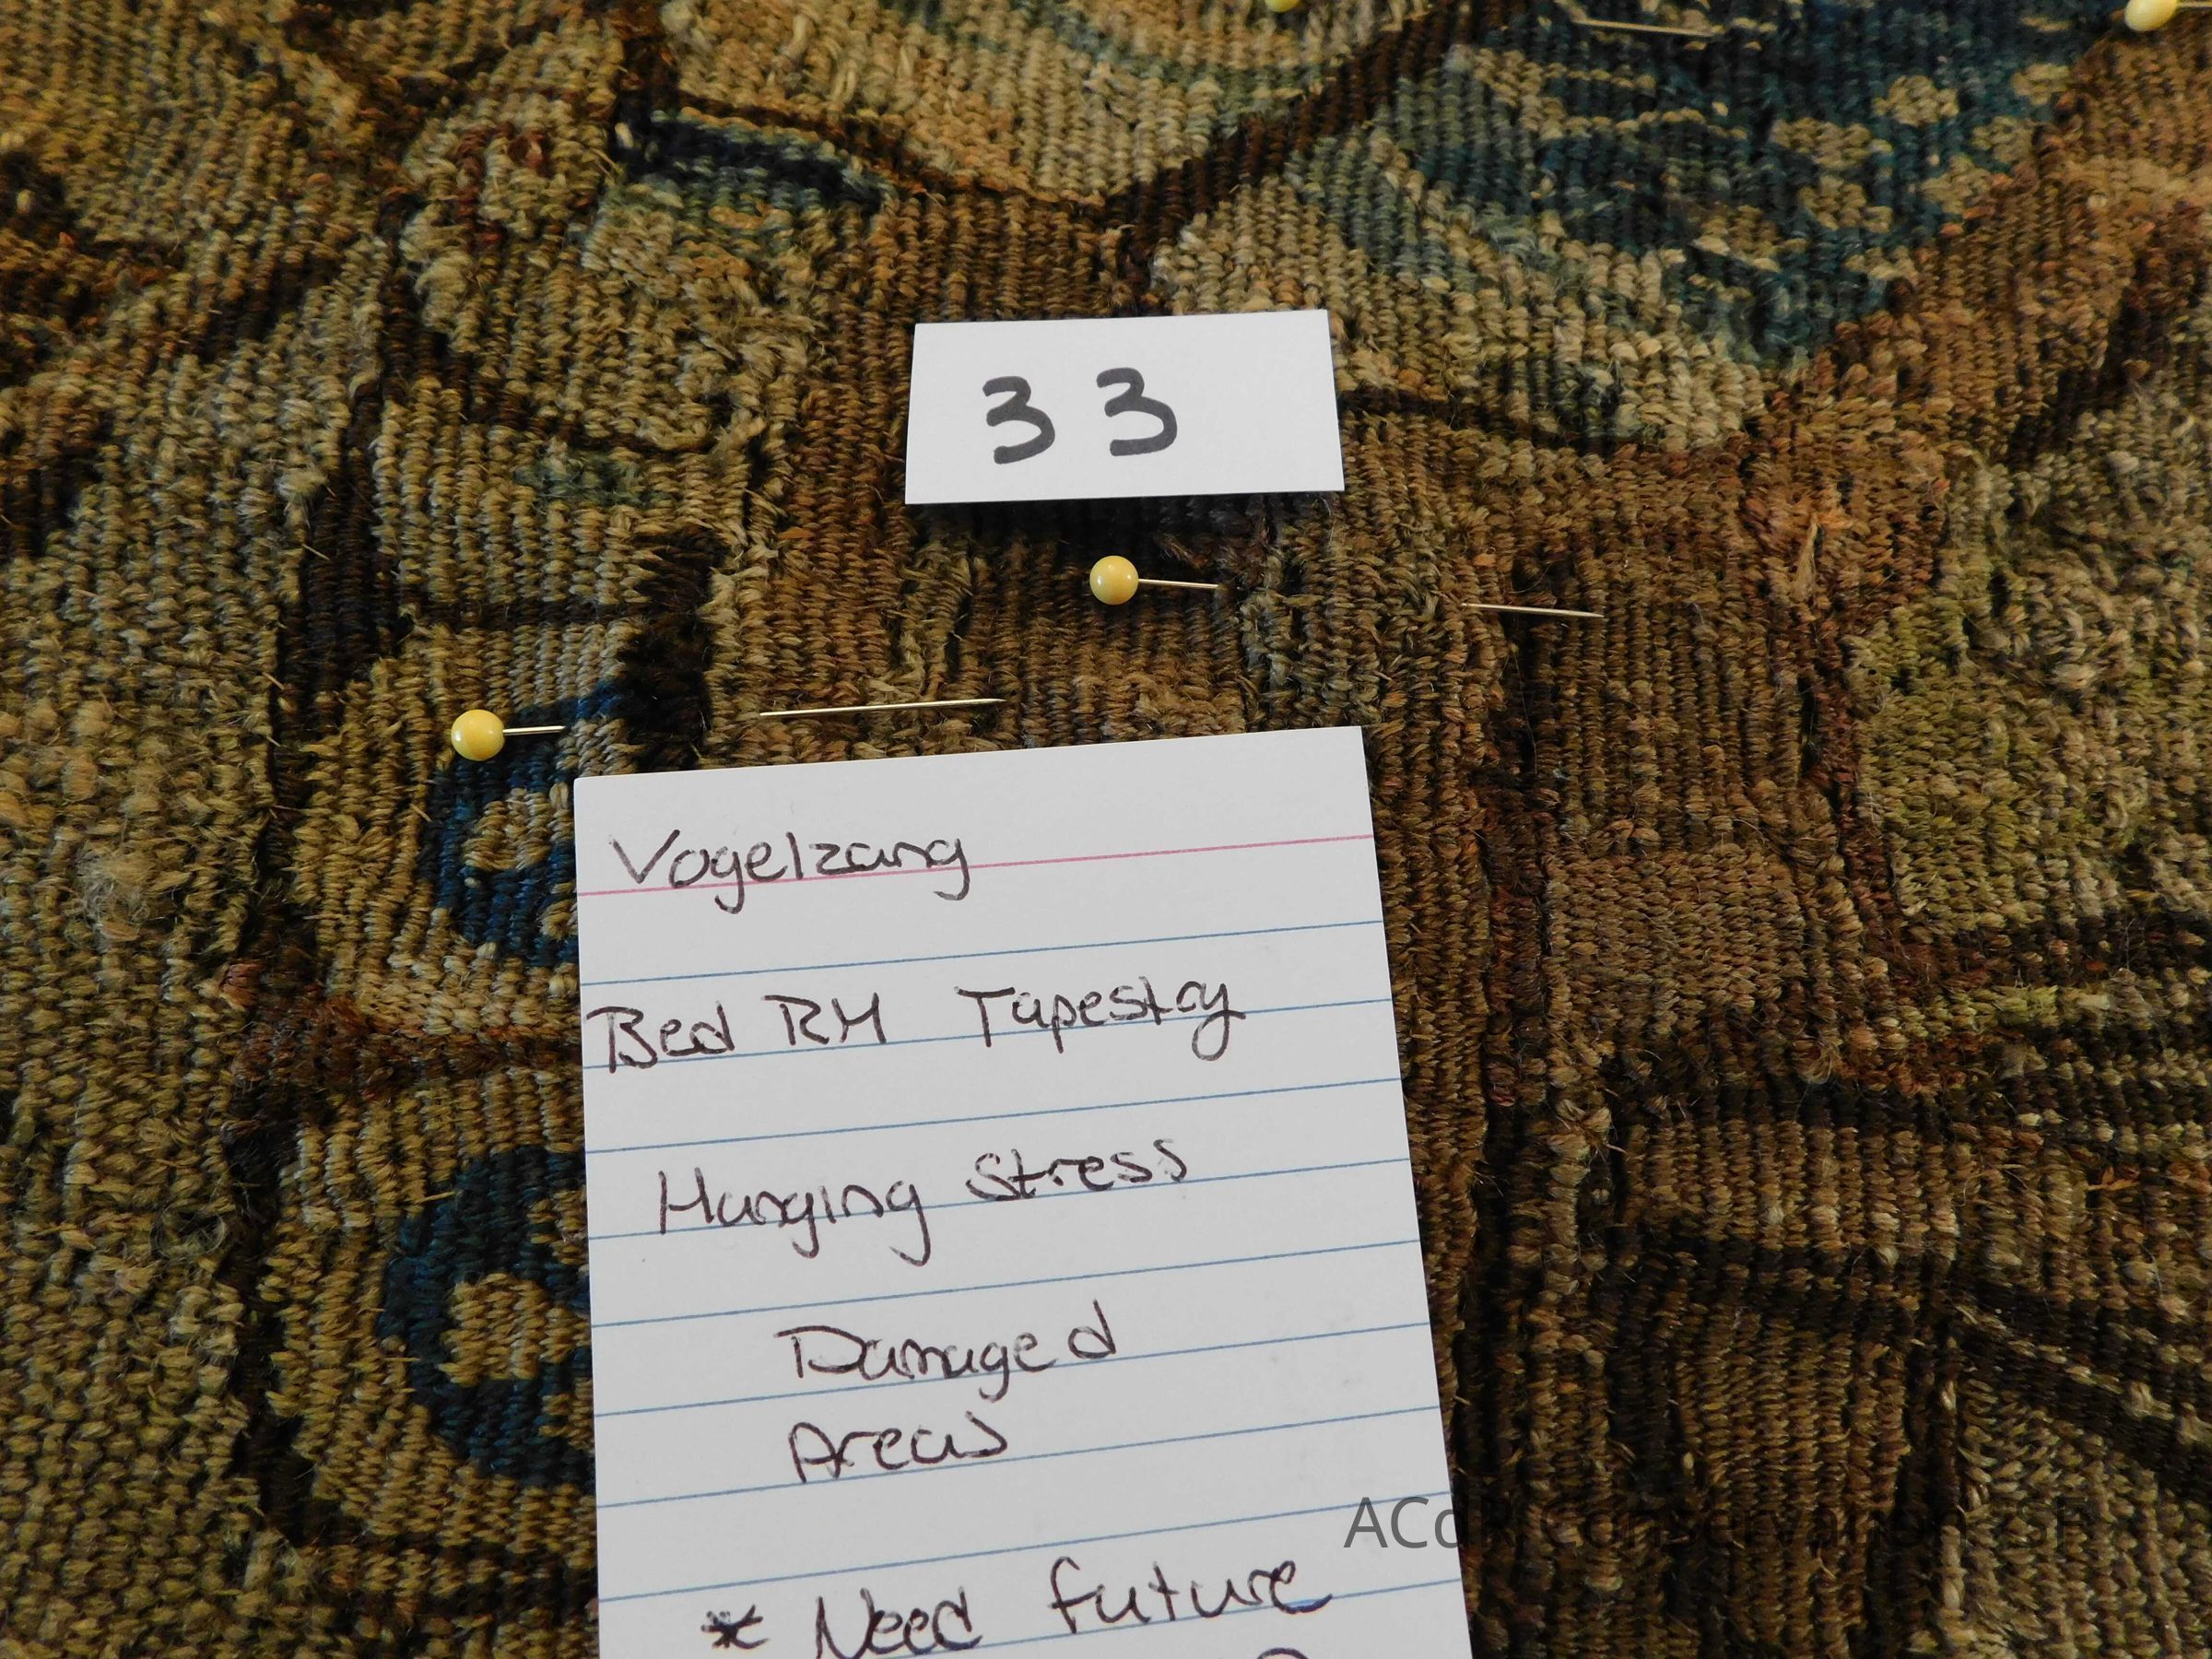 33
Vogelzang
Bed RM Tapestry
Hanging Stress
Damaged
Areas
* Need future
ACdR Conservation SF